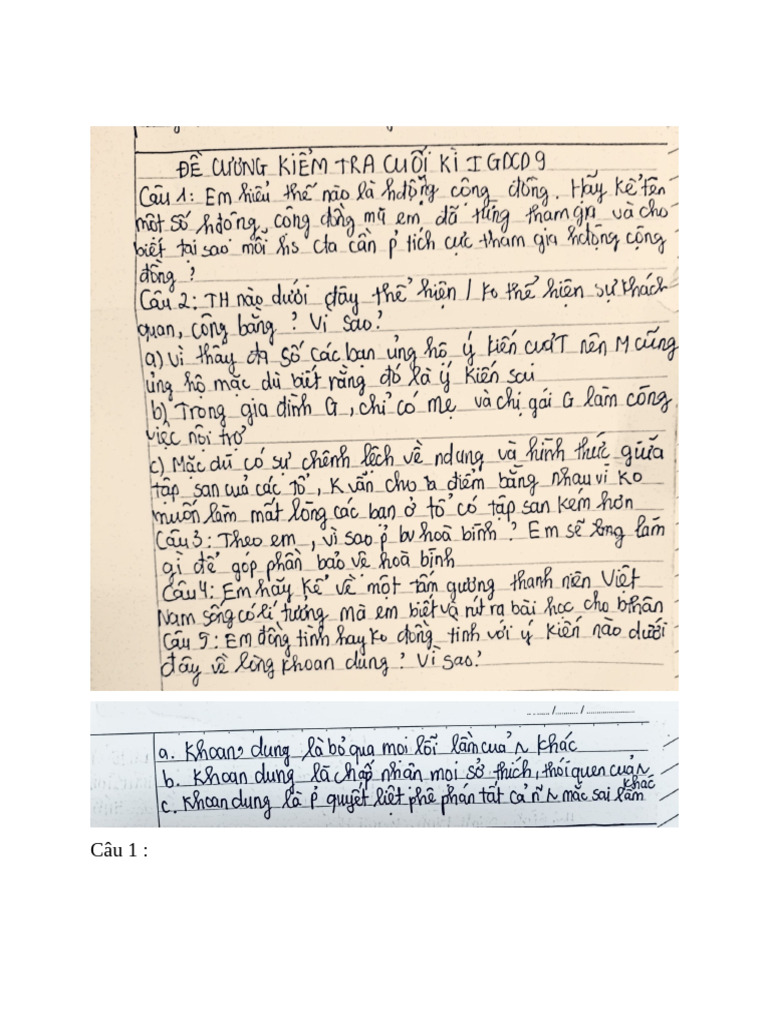 ĐỀ CƯƠNG KIỂM TRA CUỐI KÌ I GDCD 9
Câu 1: Em hiểu thế nào là hđộng cộng đồng. Hãy kể tên
một số hđông, công đồng mà em đã từng tham gia và cho
biết tại sao mỗi hs cta cần p̉ tích cực tham gia hđộng cộng
đồng ?
Câu 2: TH nào dưới đây thể hiện / ko thể hiện sự khách
quan, công bằng ? Vì sao?
a) Vì thấy đa số các bạn ủng hộ ý kiến của T nên M cũng
ủng hộ mặc dù biết rằng đó là ý kiến sai
b) Trong gia đình G, chỉ có mẹ và chị gái G làm công
việc nội trợ
c) Mặc dù có sự chênh lệch về ndung và hình thức giữa
tập san của các tổ, K vẫn cho 3 điểm bằng nhau vì ko
muốn làm mất lòng các bạn ở tổ có tập san kém hơn
Câu 3: Theo em, vì sao p̉ bv hoà bình ? Em sẽ làm
gì để góp phần bảo vệ hoà bình
Câu 4: Em hãy kể về một tấm gương thanh niên Việt
Nam sống có lí tưởng mà em biết và rút ra bài học cho bthân
Câu 5: Em đồng tình hay ko đồng tình với ý kiến nào dưới
đây về lòng khoan dung ? Vì sao?
a. Khoan dung là bỏ qua mọi lỗi lầm của khác
b. Khoan dung là chấp nhận mọi sở thích, thói quen của
khác
c. Khoan dung là p̉ quyết liệt phê phán tất cả mắc sai lầm
Câu 1 :